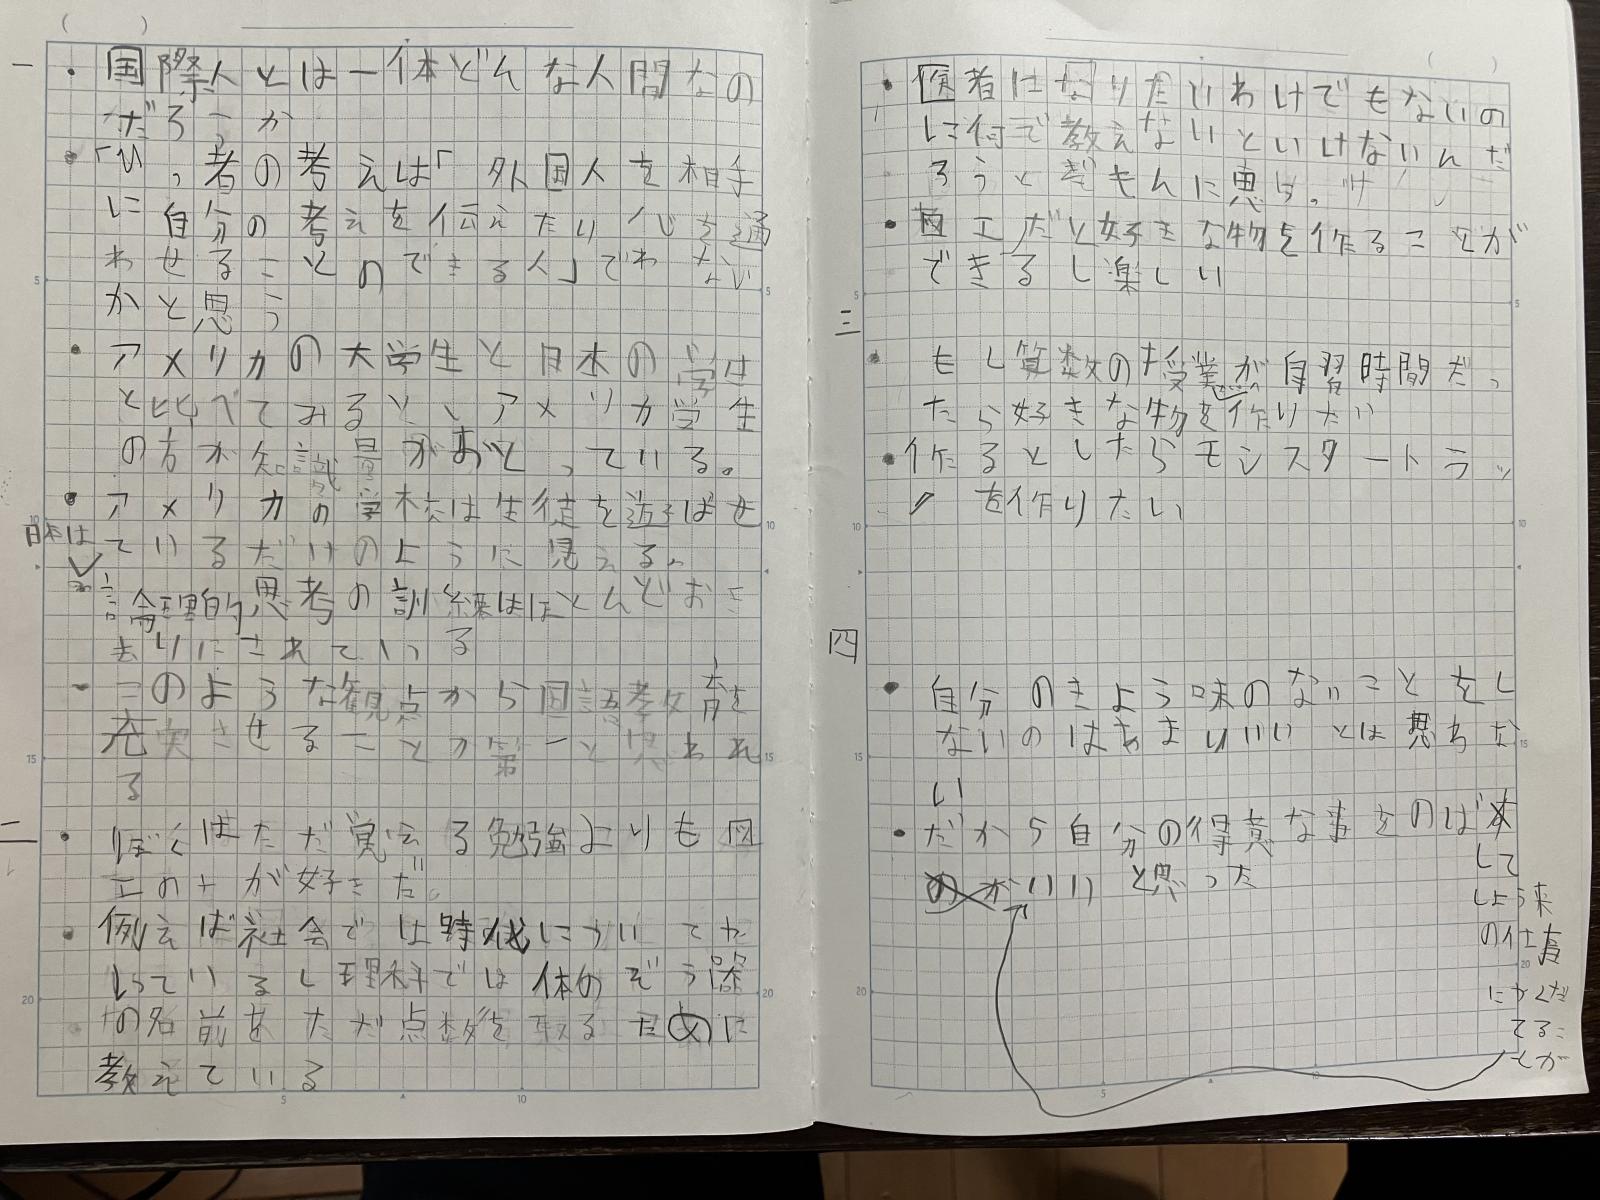 一
・国際人とは一体どんな人間なの
だろうか
・「ひっ者の考えは「外国人を相手
に自分の考えを伝えたり心を通
わせることのできる人」でわない
かと思う
・アメリカの大学生と日本の学生
と比べてみると、アメリカ学生
の方が知識量がおとっている。
・アメリカの学校は生徒を遊ばせ
ているだけのように見える。
日本は
論理的思考の訓練はほとんどおき
去りにされている
このような観点から国語教育を
充実させることが第一と思われ
る
二
・ぼくはただ覚える勉強よりも図
工の方が好きだ。
・例えば社会では時代について
っているし理科では体のぞう器
の名前をただ点数を取るために
教えている
・医者になりたいわけでもないの
に何で教えないといけないんだ
ろうとぎもんに思う。
・図工だと好きな物を作ることが
できるし楽しい
三
・もし算数の授業が自習時間だっ
たら好きな物を作りたい
・作るとしたらモンスタートラッ
クを作りたい
四
・自分のきょう味のないことをし
ないのはあまりいいとは思わな
い
・だから自分の得意な事をのばす
して
しょう来
の仕事
にやくだ
てるこ
とが
いいと思った
5
10
15
20
5
10
15
20
5
10
15
20
5
10
15
20
5
10
5
10